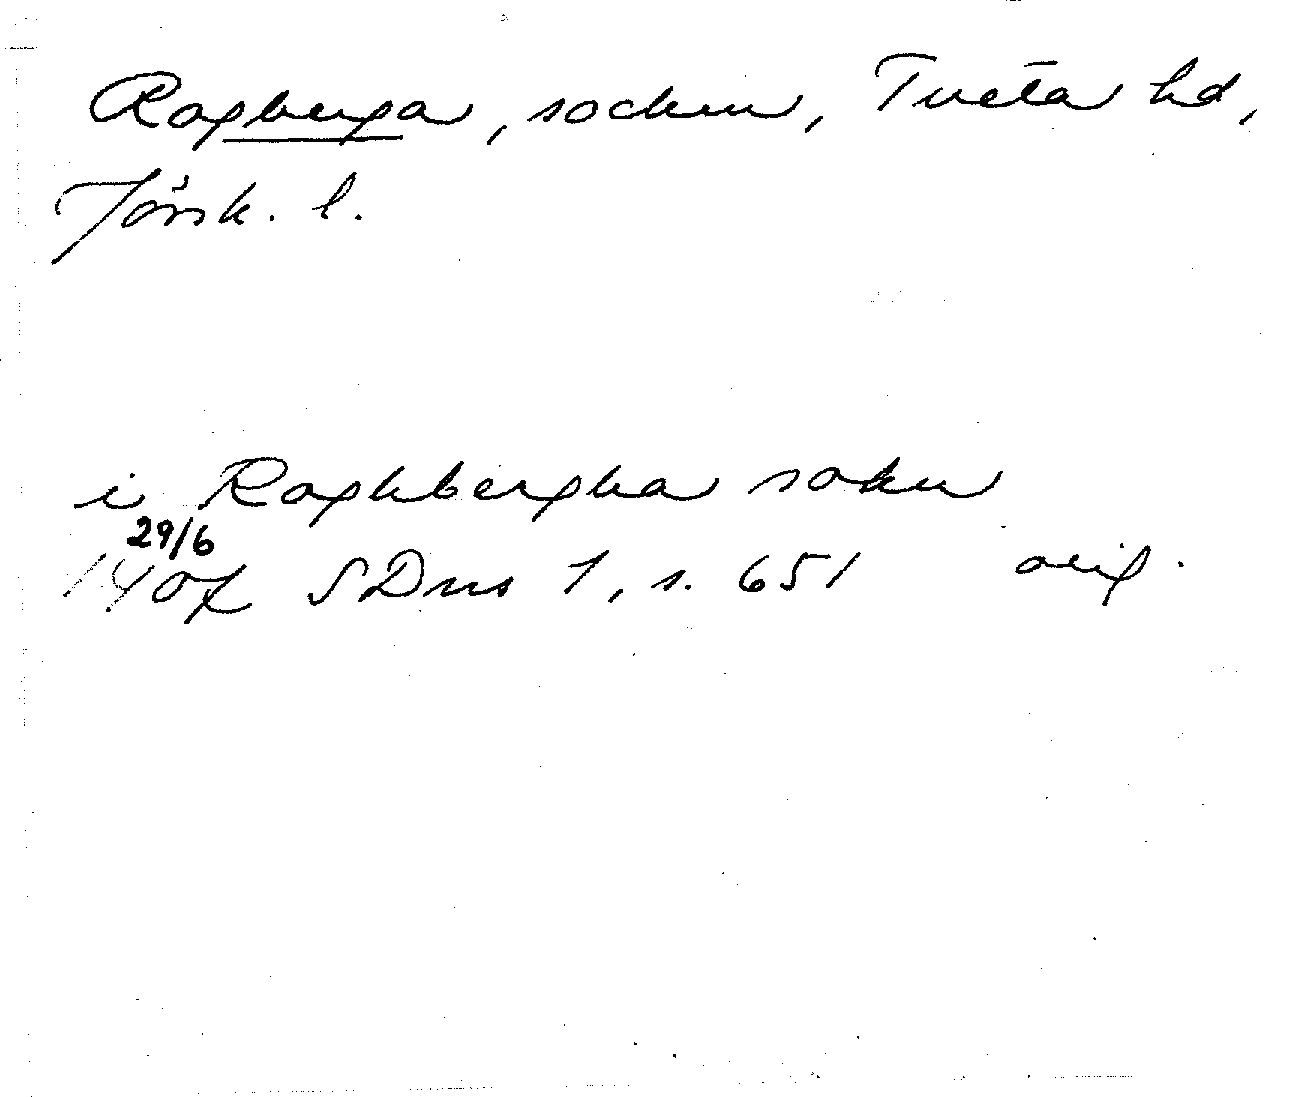 Rogberga, socken, Tveta hd,
Jönk. l.
i Roghbergha sokn
29/6
1407 SDns 1, s. 651 orig.